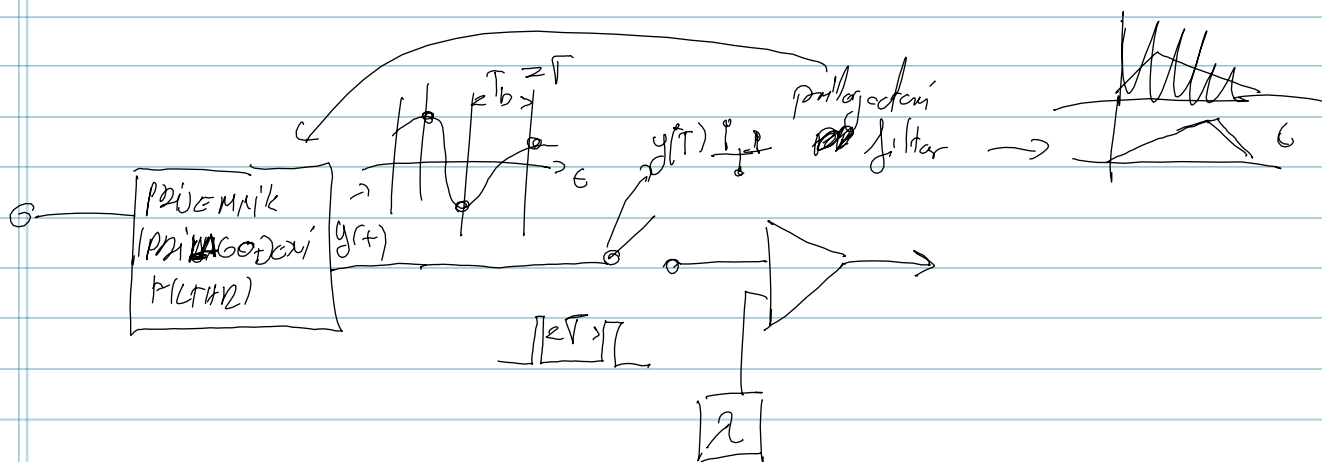 T_b = T
prilagođeni
y(T)
filtar
t
t
PRIJEMNIK
(PRILAGOĐENI
FILTAR)
y(t)
T
λ